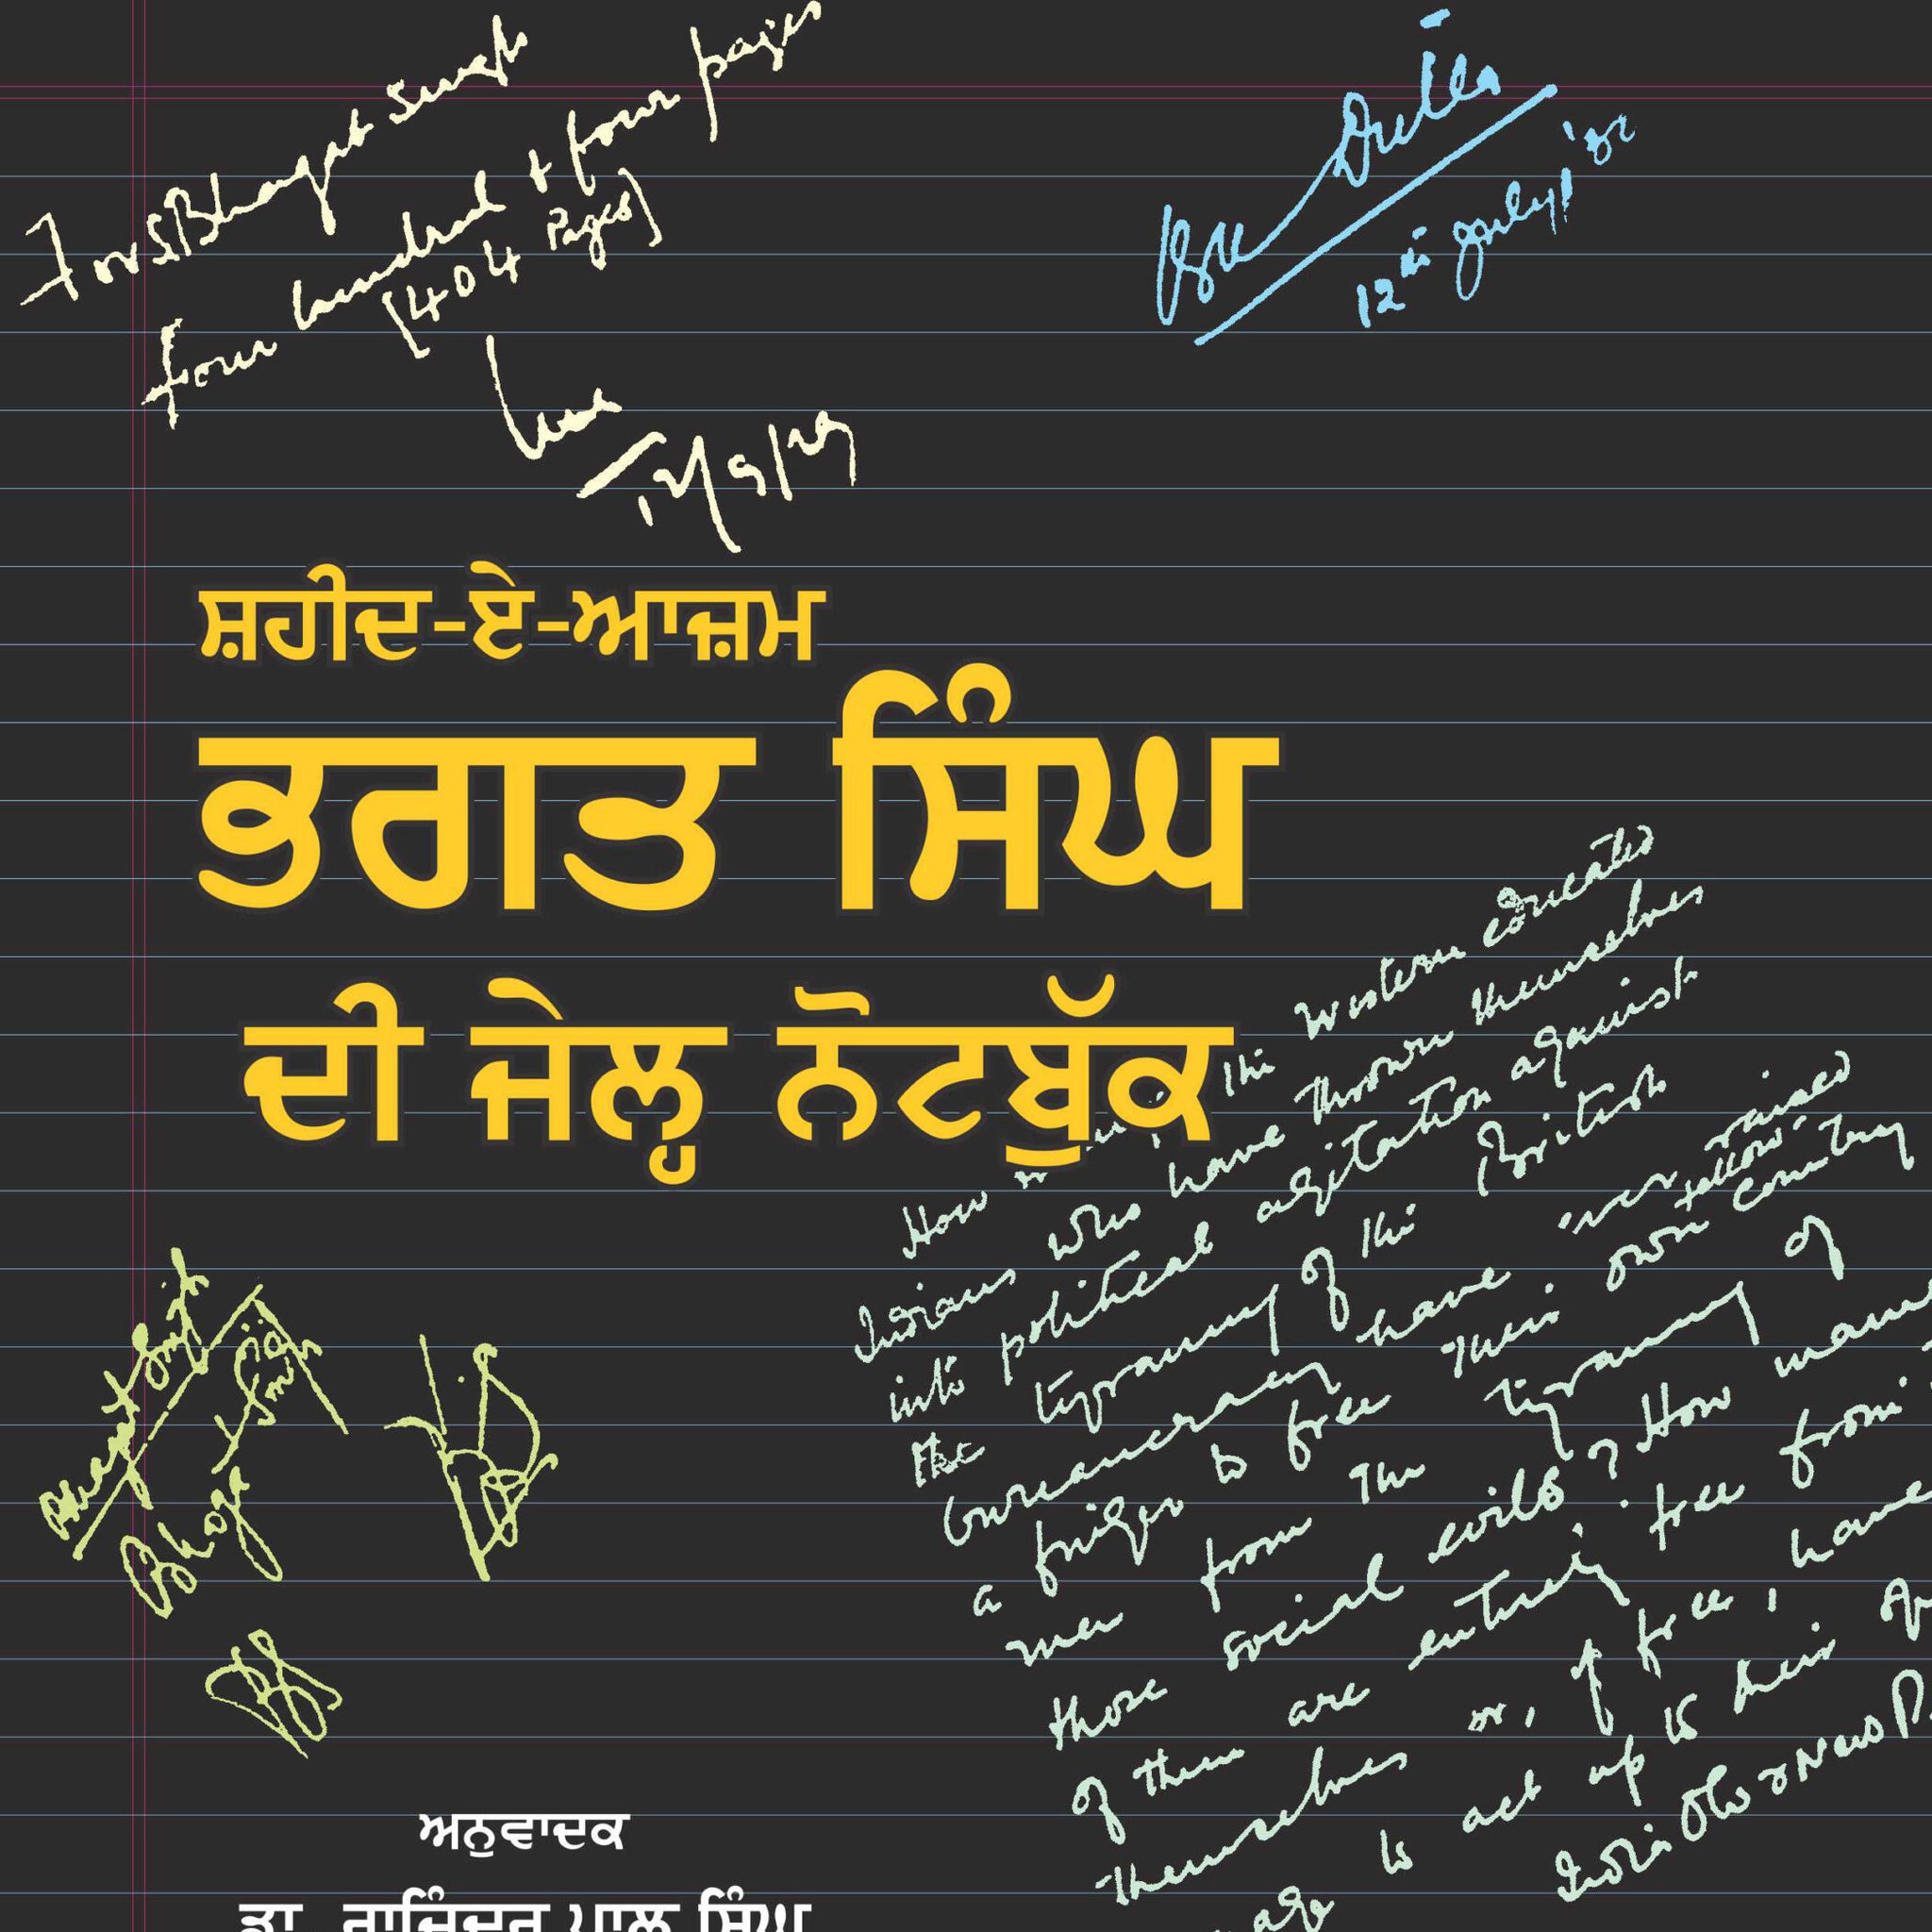 For S Bhagat Singh
Four hundred & four pages
(404 Pages)
12/9/29
12th July '30
ਸ਼ਹੀਦ-ਏ-ਆਜ਼ਮ
ਭਗਤ ਸਿੰਘ
ਦੀ ਜੇਲ੍ਹ ਨੋਟਬੁੱਕ
How the Western educated
Indians who have thrown themselves
into political agitation against
the tyranny of the British
have ever raised
a finger to free their own fellow-
men from the tyranny of country
those social evils? How many
of them are entirely free from
themselves or, if free, have
to act up to their
Bhagat Singh
ਅਨੁਵਾਦਕ
ਡਾ. ਰਾਜਿੰਦਰ ਪਾਲ ਸਿੰਘ